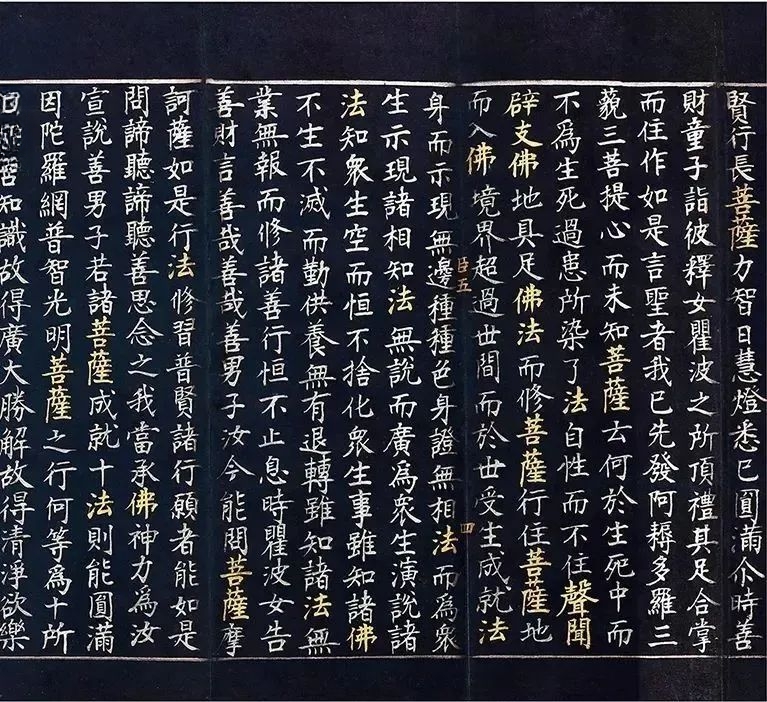 賢行長菩薩力智日慧燈悉已圓滿尒時善
財童子詣彼釋女瞿波之所頂禮其足合掌
而住作如是言聖者我已先發阿耨多羅三
藐三菩提心而未知菩薩云何於生死中而
不爲生死過患所染了法自性而不住聲聞
辟支佛地具足佛法而修菩薩行住菩薩地
而入佛境界超過世間而於世受生成就法
廿五
四
身而示現無邊種種色身證無相法而爲衆
生示現諸相知法無說而廣爲衆生演說諸
法知衆生空而恒不捨化衆生事雖知諸佛
不生不滅而勤供養無有退轉雖知諸法無
業無報而修諸善行恒不止息時瞿波女告
善財言善哉善哉善男子汝今能問菩薩摩
訶薩如是行法修習普賢諸行願者能如是
問諦聽諦聽善思念之我當承佛神力爲汝
宣說善男子若諸菩薩成就十法則能圓滿
因陀羅網普智光明菩薩之行何等爲十所
知識故得廣大勝解故得清淨欲樂